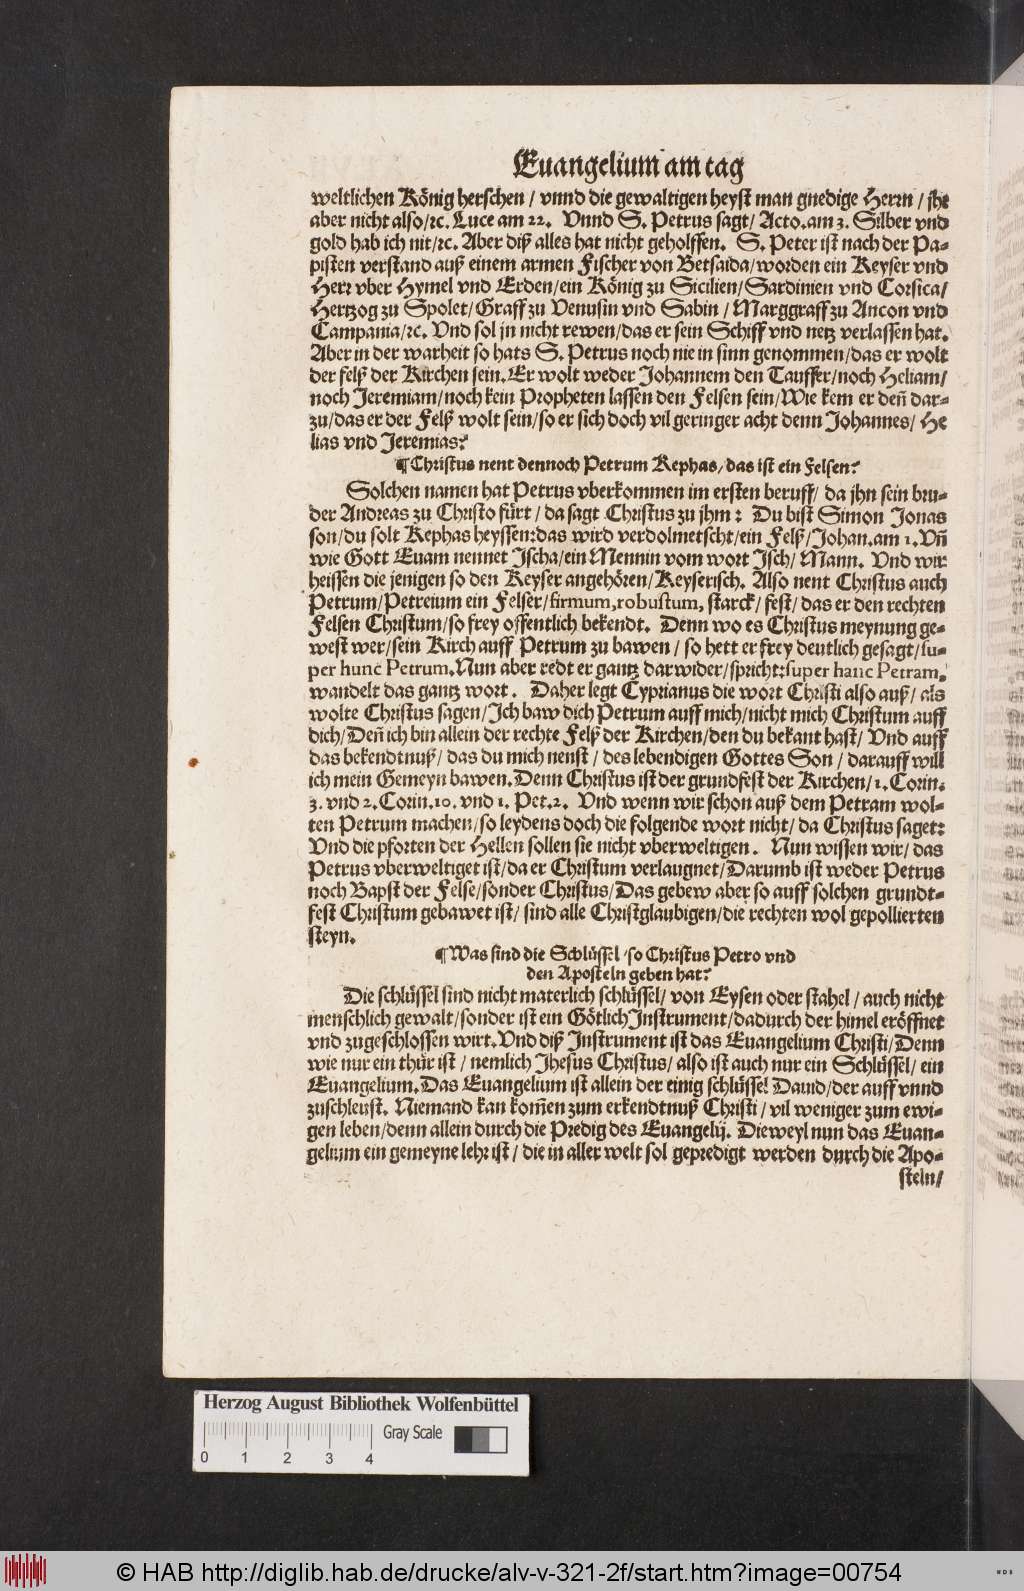 Euangelium am tag
weltlichen König herschen / vnnd die gewaltigen heyst man gnedige Herrn / jhr
aber nicht also /ꝛc. Luce am 22. Vnnd S. Petrus sagt / Acto. am 3. Silber vnd
gold hab ich nit /ꝛc. Aber diß alles hat nicht geholffen. S. Peter ist nach der Pa-
pisten verstand auß einem armen Fischer von Betsaida / worden ein Keyser vnd
Herr vber Hymel vnd Erden / ein König zu Sicilien / Sardinien vnd Corsica /
Hertzog zu Spolet / Graff zu Venusin vnd Sabin / Marggraff zu Ancon vnd
Campania /ꝛc. Vnd sol jn nicht rewen / das er sein Schiff vnd netz verlassen hat.
Aber in der warheit so hats S. Petrus noch nie in sinn genommen / das er wolt
der felß der Kirchen sein. Er wolt weder Johannem den Tauffer / noch Heliam /
noch Jeremiam / noch kein Propheten lassen den Felsen sein / Wie kem er deñ dar-
zu / das er der Felß wolt sein / so er sich doch vil geringer acht denn Johannes / He
lias vnd Jeremias?
¶ Christus nent dennoch Petrum Kephas / das ist ein Felsen?
Solchen namen hat Petrus vberkommen im ersten beruff / da jhn sein bru-
der Andreas zu Christo fürt / da sagt Christus zu jhm : Du bist Simon Jonas
son / du solt Kephas heyssen: das wird verdolmetscht / ein Felß / Johan. am 1. Vñ
wie Gott Euam nennet Jscha / ein Mennin vom wort Jsch / Mann. Vnd wir
heissen die jenigen so den Keyser angehören / Keyserisch. Also nent Christus auch
Petrum / Petreium ein Felser / firmum, robustum, starck / fest / das er den rechten
Felsen Christum / so frey offentlich bekendt. Denn wo es Christus meynung ge-
west wer / sein Kirch auff Petrum zu bawen / so hett er frey deutlich gesagt / su-
per hunc Petrum. Nun aber redt er gantz darwider / spricht: super hanc Petram,
wandelt das gantz wort. Daher legt Cyprianus die wort Christi also auß / als
wolte Christus sagen / Jch baw dich Petrum auff mich / nicht mich Christum auff
dich / Deñ ich bin allein der rechte Felß der Kirchen / den du bekant hast / Vnd auff
das bekendtnuß / das du mich nenst / des lebendigen Gottes Son / darauff will
ich mein Gemeyn bawen. Denn Christus ist der grundfest der Kirchen / 1. Corin.
3. vnd 2. Corin. 10. vnd 1. Pet. 2. Vnd wenn wir schon auß dem Petram wol-
ten Petrum machen / so leydens doch die folgende wort nicht / da Christus saget:
Vnd die pforten der Hellen sollen sie nicht vberweltigen. Nun wissen wir / das
Petrus vberweltiget ist / da er Christum verlaugnet / Darumb ist weder Petrus
noch Bapst der Felse / sonder Christus / Das gebew aber so auff solchen grundt-
fest Christum gebawet ist / sind alle Christglaubigen / die rechten wol gepollierten
steyn.
¶ Was sind die Schlüssel / so Christus Petro vnd
den Aposteln geben hat?
Die schlüssel sind nicht materlich schlüssel / von Eysen oder stahel / auch nicht
menschlich gewalt / sonder ist ein Götlich Jnstrument / dadurch der himel eröffnet
vnd zugeschlossen wirt. Vnd diß Jnstrument ist das Euangelium Christi / Denn
wie nur ein thür ist / nemlich Jhesus Christus / also ist auch nur ein Schlüssel / ein
Euangelium. Das Euangelium ist allein der einig schlüssel Dauid / der auff vnnd
zuschleust. Niemand kan kom̃en zum erkendtnuß Christi / vil weniger zum ewi-
gen leben / denn allein durch die Predig des Euangelij. Dieweyl nun das Euan-
gelium ein gemeyne lehr ist / die in aller welt sol gepredigt werden durch die Apo-
steln /
Herzog August Bibliothek Wolfenbüttel
Gray Scale
0 1 2 3 4
© HAB http://diglib.hab.de/drucke/alv-v-321-2f/start.htm?image=00754